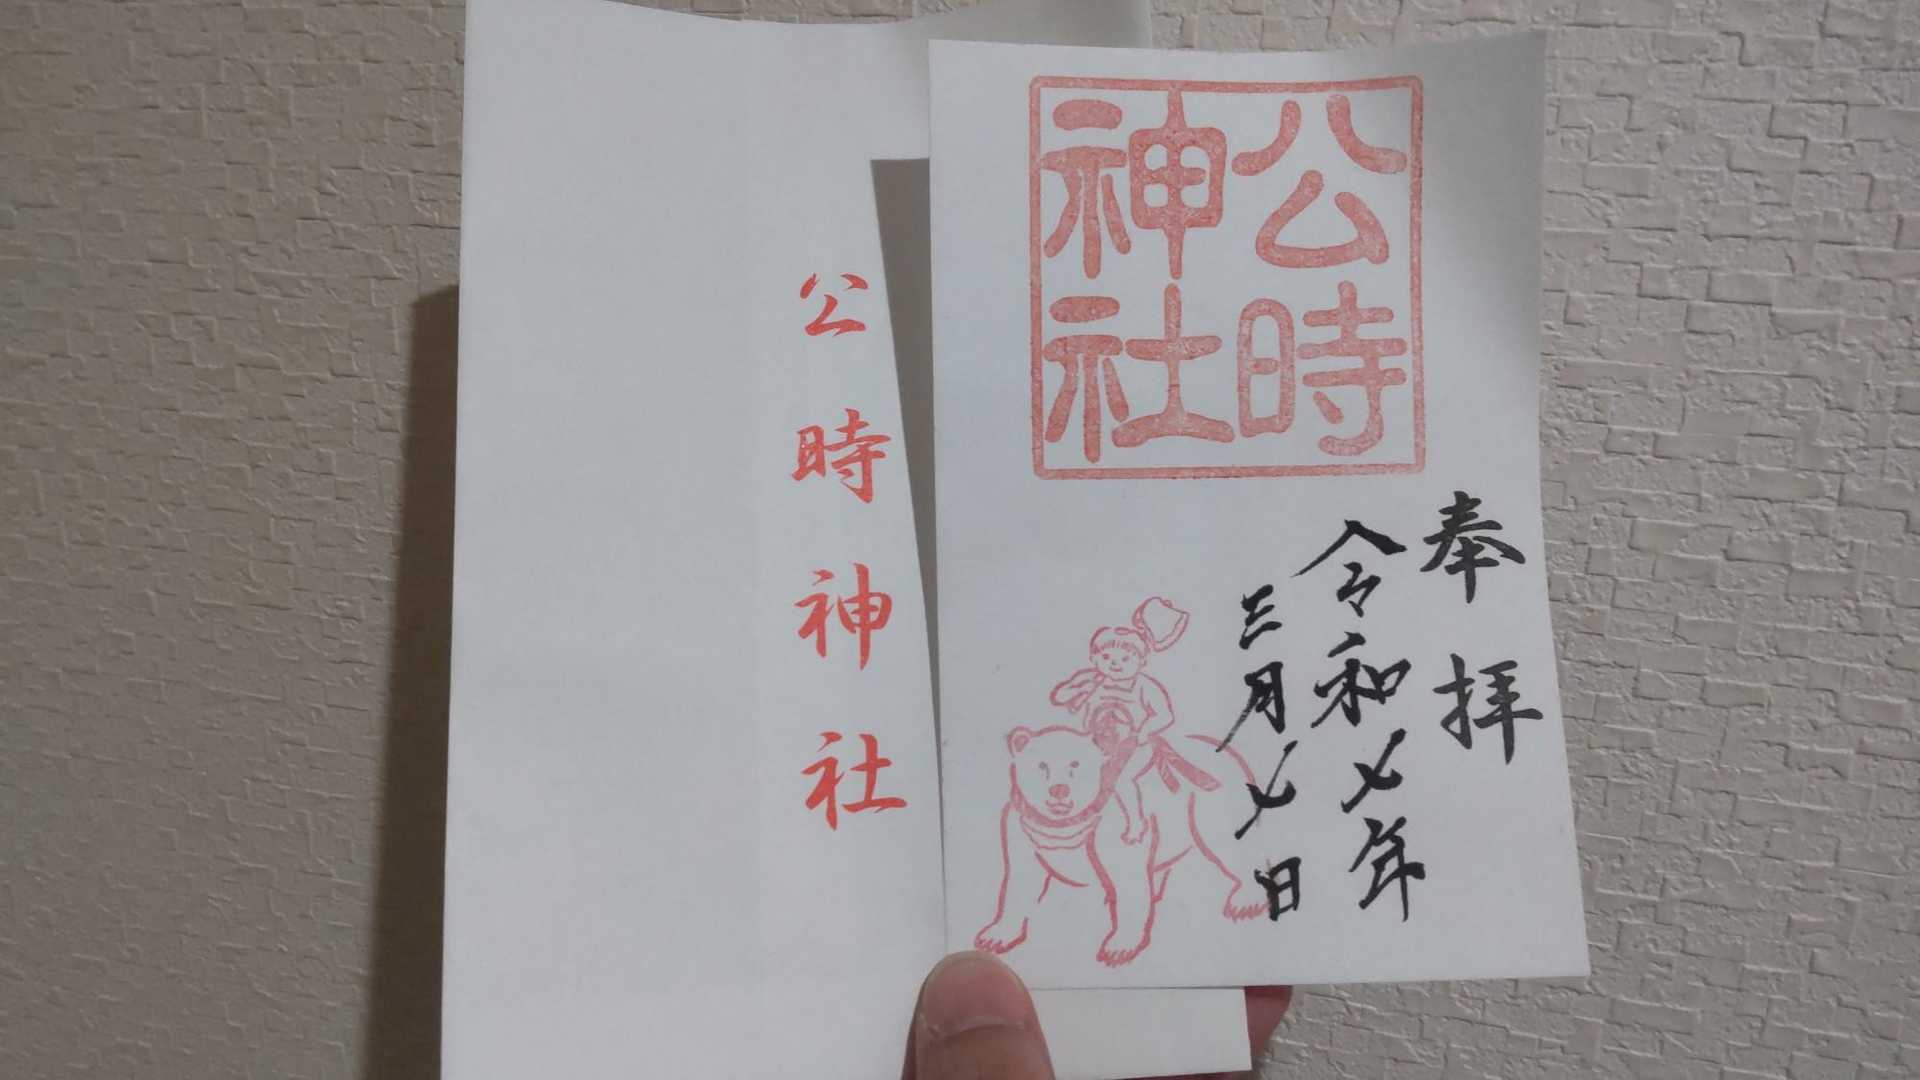 公時神社
公時
神社
奉拝
令和七年
三月七日